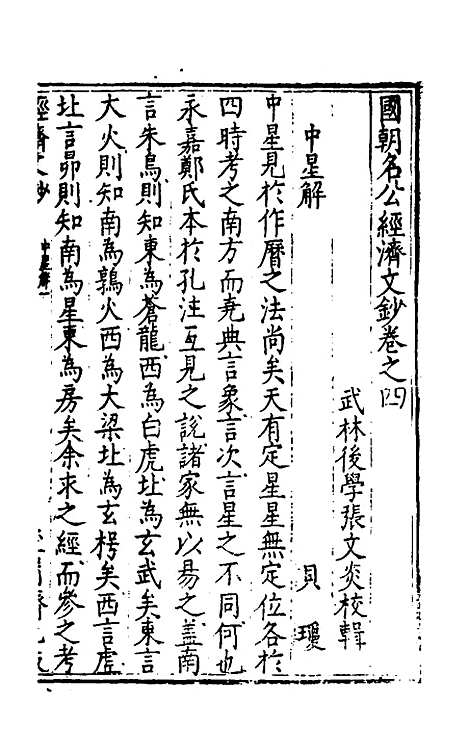 國朝名公經濟文鈔卷之四
武林後學張文炎校輯
中星解 貝瓊
中星見於作曆之法尚矣天有定星星無定位各於
四時考之南方而堯典言象言次言星之不同何也
永嘉鄭氏本於孔注互見之說諸家無以易之盖南
言朱鳥則知東為蒼龍西為白虎北為玄武矣東言
大火則知南為鶉火西為大梁北為玄枵矣西言虛
北言昴則知南為星東為房矣余求之經而參之考
經濟文鈔 中星解一